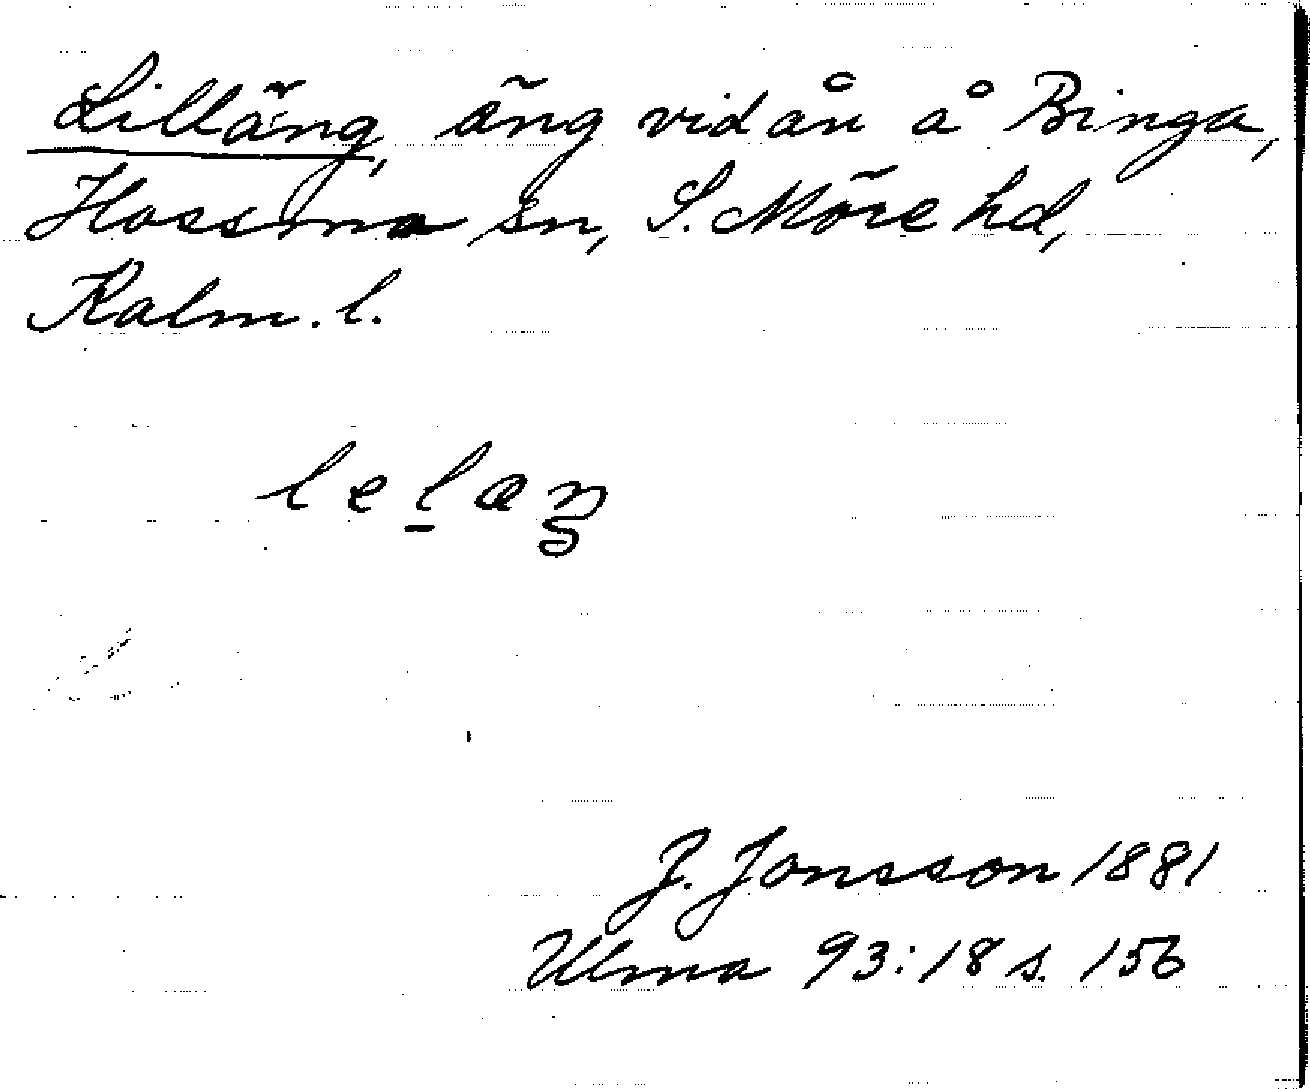 Lilläng, äng vid ån å Binga,
Hossmo sn, S. Möre hd,
Kalm. l.
lelæŋ
J. Jonsson 1881
Ulma 93:18 s. 156